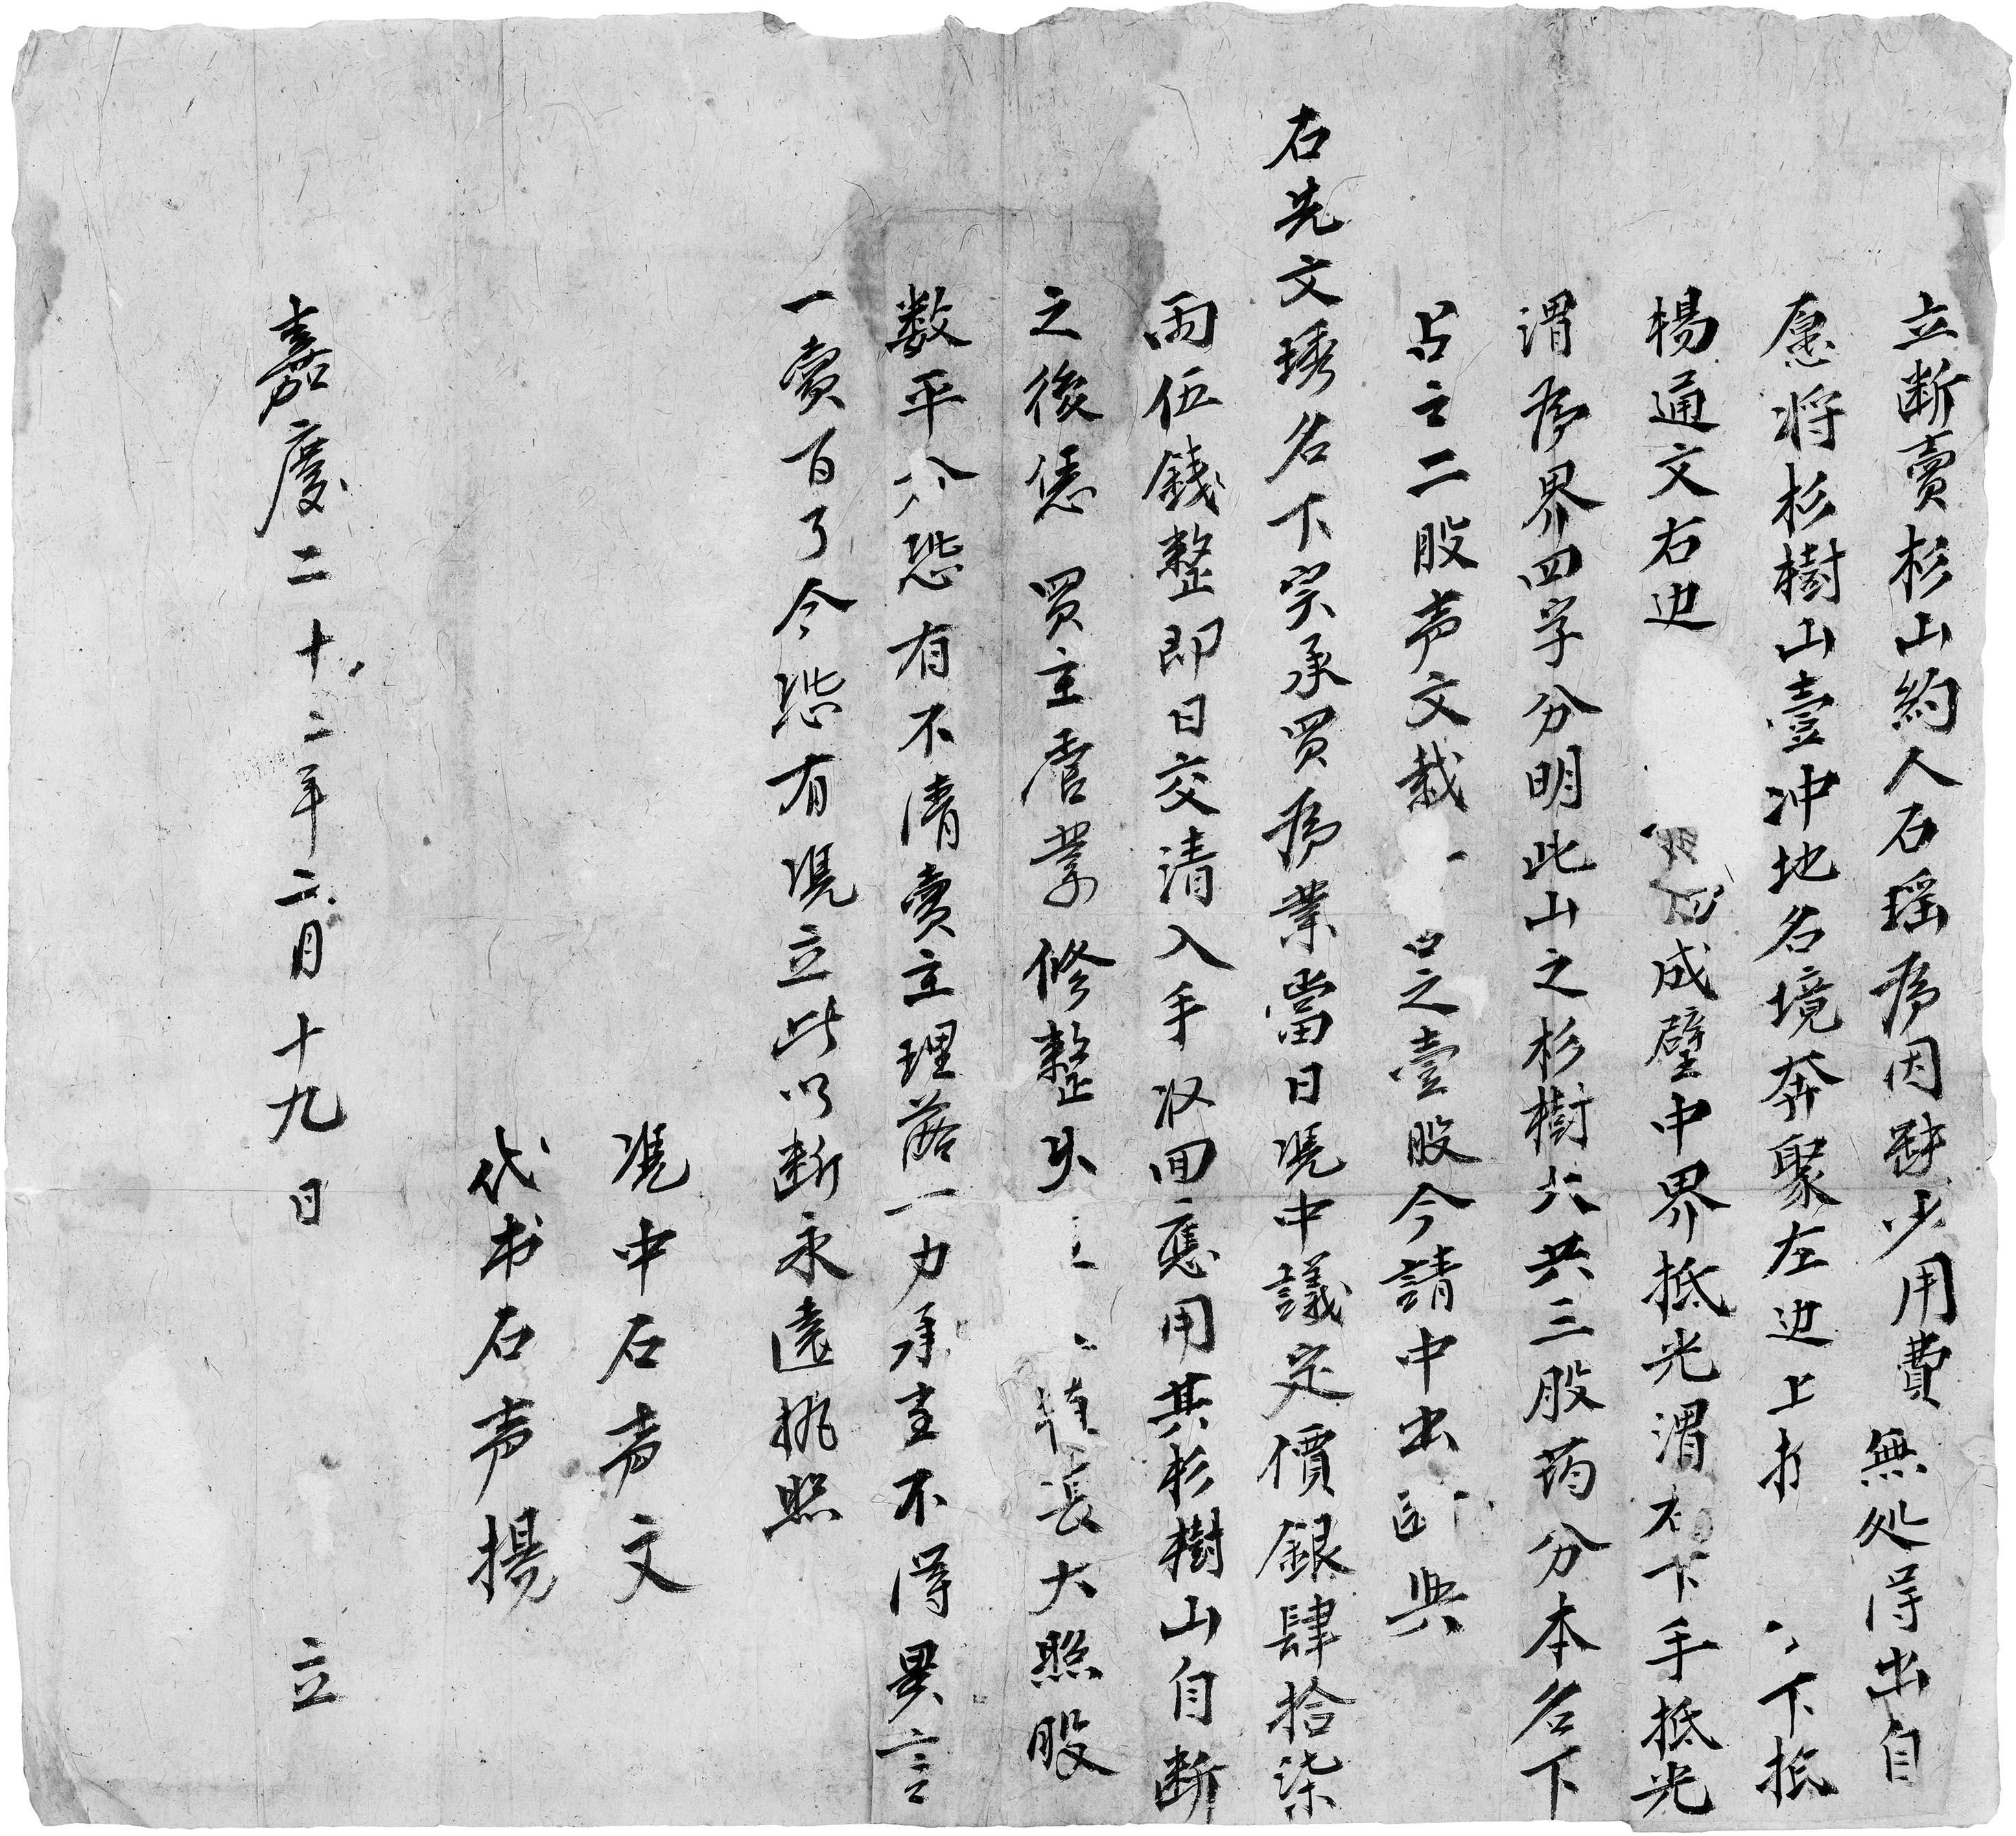 立断賣杉山約人石瑶為因缺少用費無处得出自
愿将杉樹山壹冲地名境奔聚左边上下抵
楊通文右边成壁中界抵光渭右下手抵光
渭為界四字分明此山之杉樹六共三股均分本名下
占之二股声文栽占之壹股今請中出断與
石先文琇名下実承買為業當日凴中議定價銀肆拾柒
両伍錢整即日交清入手収回應用其杉樹山自断
之後憑買主管業修整長大照股
数平分恐有不清賣主理落一力承當不得異言
一賣百了今恐有凴立此以断永遠执照
凴中石声文
代书石声揚
嘉慶二十二年二月十九日立